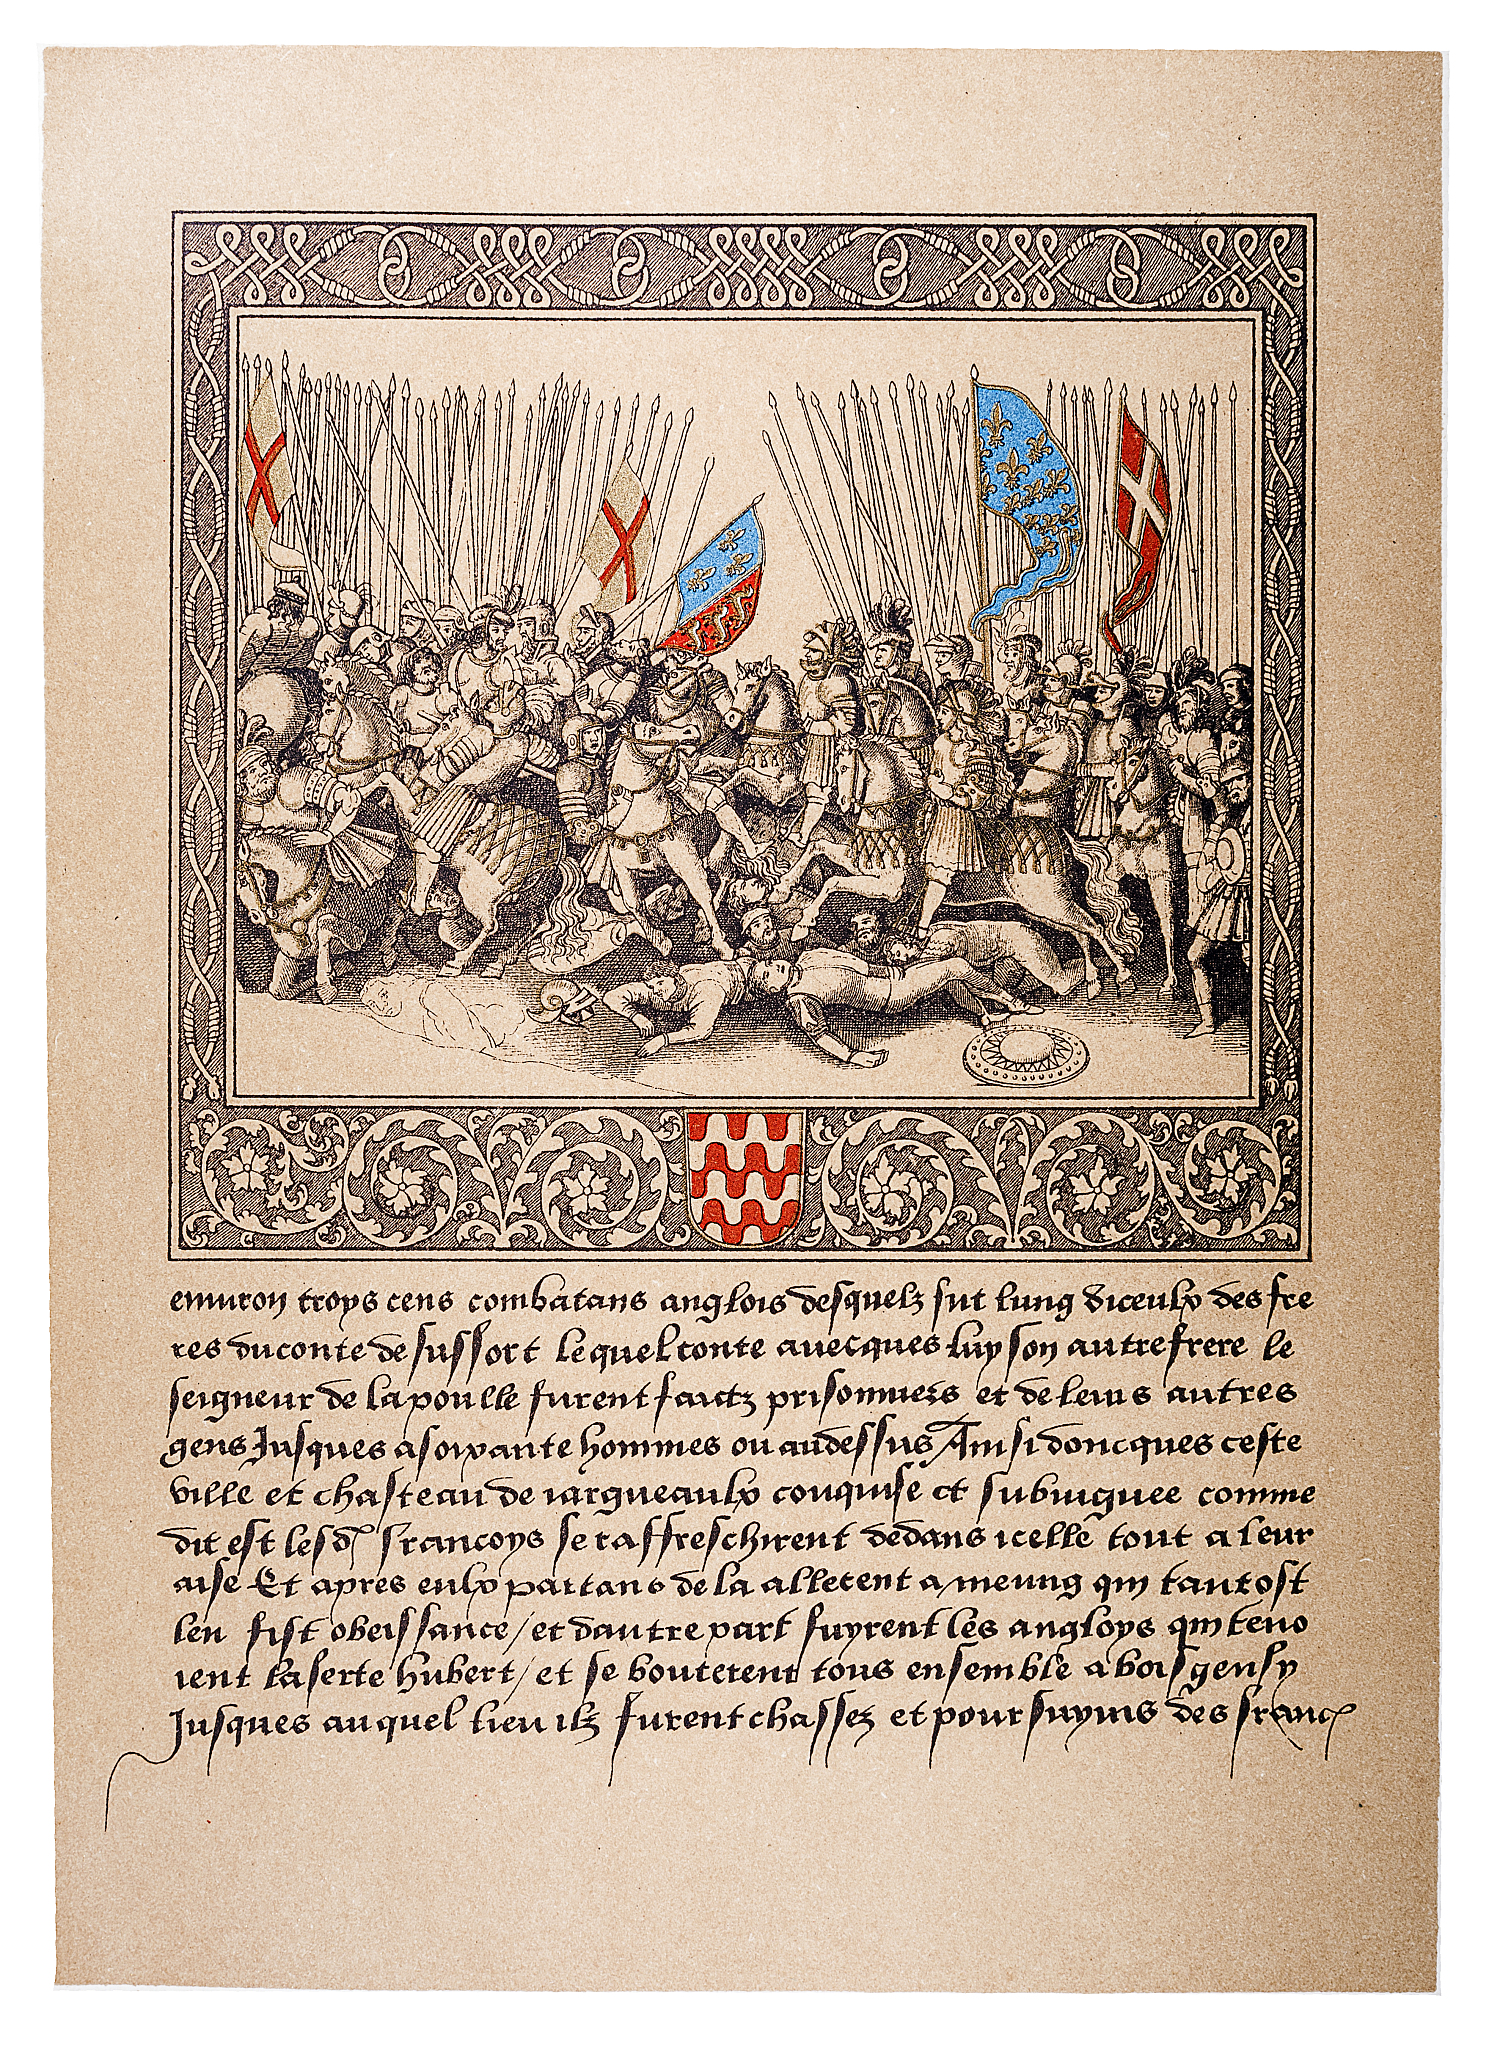 enuiron troys cens combatans anglois desquelz fut lung diceulx des fre
res du conte de suffort lequel conte auecques luy son autre frere le
seigneur de la poulle furent faictz prisonniers et de leurs autres
gens Jusques a soixante hommes ou audessus Ainsi doncques ceste
ville et chasteau de iargueaulx conquise et subiuguee comme
dit est lesd francoys se raffreschirent dedans icelle tout a leur
aise Et apres eulx partans de la allerent a meung qui tantost
leu fist obeissance / et dautre part fuyrent les angloys qui teno
ient la ferte hubert / et se bouterent tous ensemble a boisgensy
Jusques au quel lieu ilz furent chassez et poursuyuis des franc